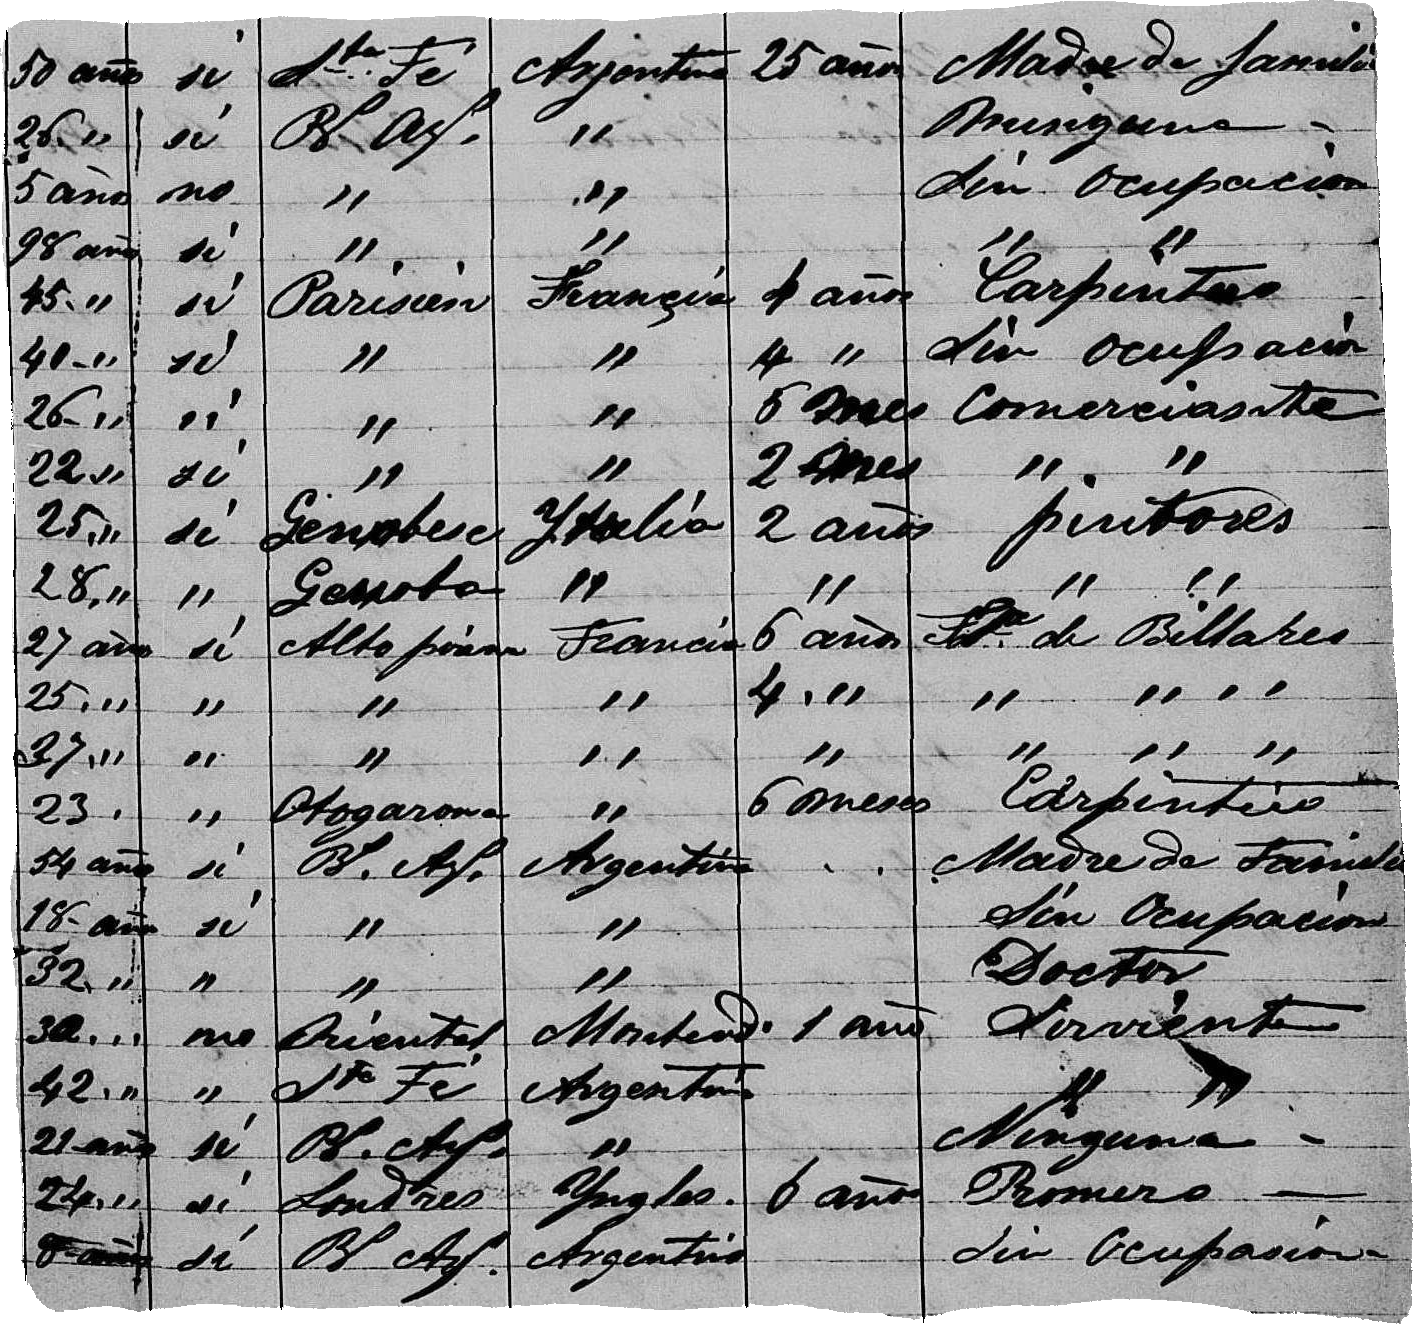 50 años sí Sta. Fé Argentina 25 años Madre de familia
26 " sí Bs. Ays. " Ninguna -
5 años no " " Sin Ocupacion
98 años sí " " " "
45 " sí Parisien Francia 4 años Carpintero
40 - " sí " " 4 " Sin ocupacion
26 - " " " " 5 mes Comerciante
22 " sí " " 2 mes " "
25 " sí Genobese Ytalia 2 años pintores
28 " " Genoba " " " "
27 años sí Alto Francia 6 años de Billares
25 " " " " 4 " " " "
37 " " " " " " " "
23 " " 6 meses Carpintero
54 años sí Bs. Ays. Argentina Madre de Familia
18 - años sí " " Sin Ocupacion
32 " " " " Doctor
30 " no Oriental Montevdo. 1 año Sirviente
42 " " Sta Fé Argentina " "
21 años sí Bs. Ays. " Ninguna -
24 " sí Londres Yngles. 6 años Romero —
8 años sí Bs Ays. Argentino Sin Ocupasion -